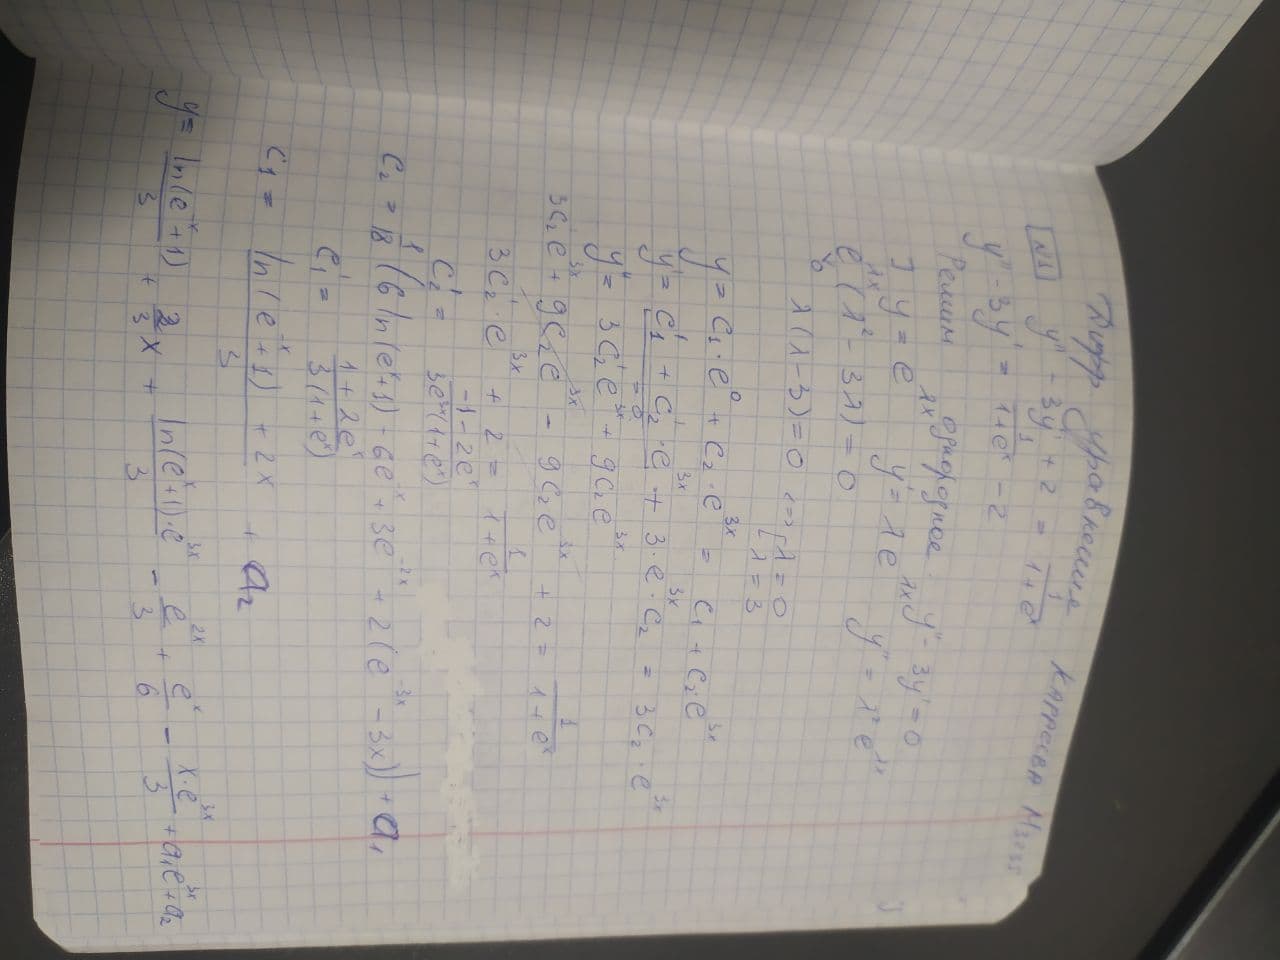 Дифф уравнения Каррсева М3235
№1 y'' - 3y' + 2 = 1/(1+e^x)
y'' - 3y' = 1/(1+e^x) - 2
Решим однородное. y'' - 3y' = 0
] y = e^{λx} y' = λe^{λx} y'' = λ²e^{λx}
e^{λx}(λ² - 3λ) = 0
λ(λ-3) = 0 <=> [λ = 0
λ = 3
y = c₁·e⁰ + c₂·e^{3x} = c₁ + c₂·e^{3x}
y' = c₁' + c₂'·e^{3x} + 3·e^{3x}·c₂ = 3c₂·e^{3x}
= 0
y'' = 3c₂'e^{3x} + 9c₂e^{3x}
3c₂'e^{3x} + 9c₂e^{3x} - 9c₂e^{3x} + 2 = 1/(1+e^x)
3c₂'·e^{3x} + 2 = 1/(1+e^x)
c₂' = (-1-2e^x)/(3e^{3x}(1+e^x))
c₂ = 1/18 (6 ln(e^x+1) - 6e^{-x} + 3e^{-2x} + 2(e^{-3x} - 3x)) + a₁
c₁' = (1+2e^x)/(3(1+e^x))
c₁ = (ln(e^{-x}+1) + 2x)/3 + a₂
y = ln(e^{-x}+1)/3 + 2/3 x + ln(e^x+1)·e^{3x}/3 - e^{2x}/3 + e^x/6 - x·e^{3x}/3 + a₁e^{3x} + a₂